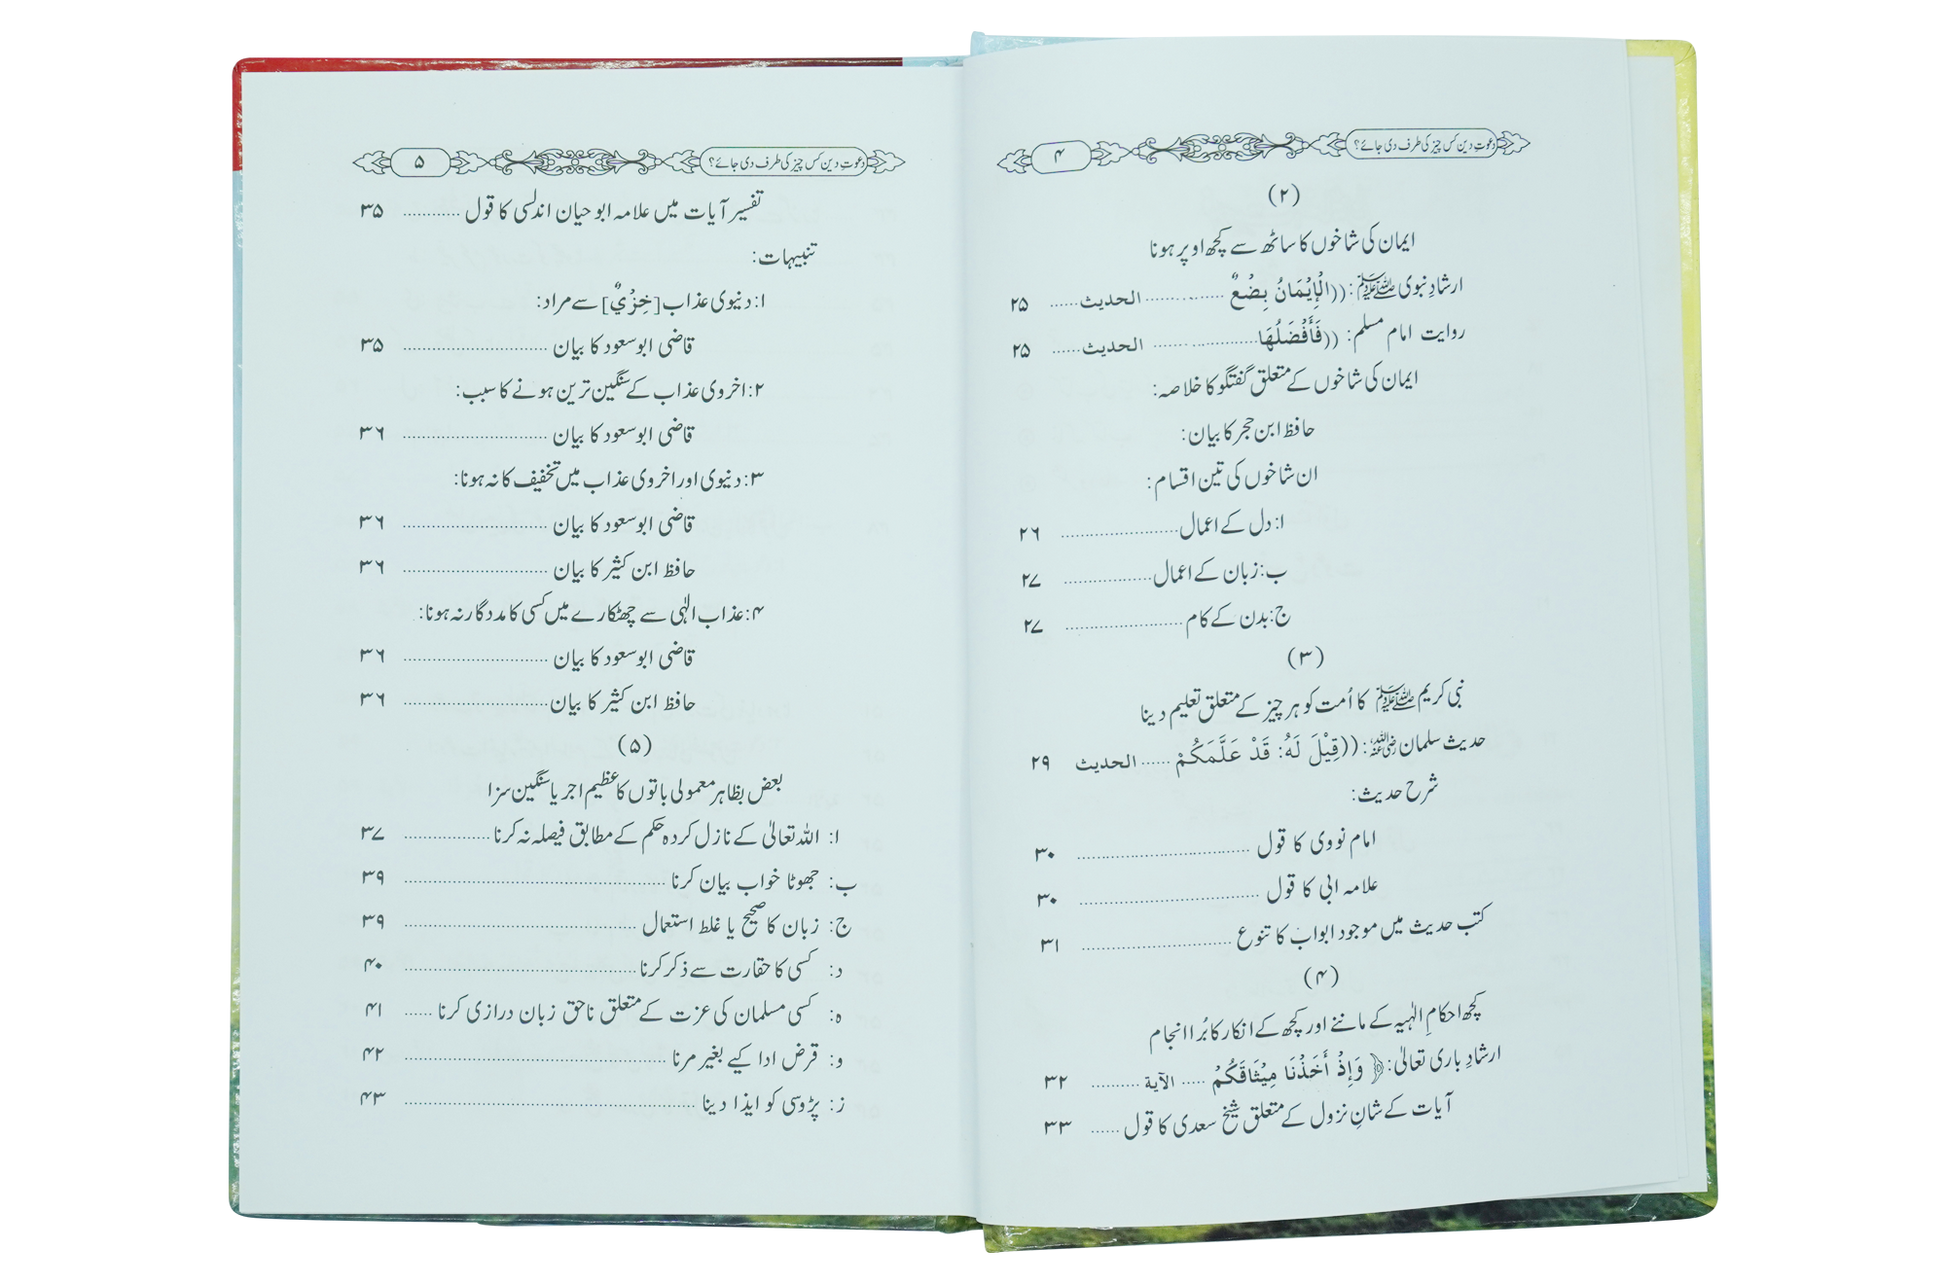 دعوتِ دین کس چیز کی طرف دی جائے؟ ۴
(۲)
ایمان کی شاخوں کا ساٹھ سے کچھ اوپر ہونا
ارشادِ نبوی ﷺ: ((الْإِيْمَانُ بِضْعٌ ............ الحديث ...... ۲۵
روایت امام مسلم: ((فَأَفْضَلُهَا ............ الحديث ...... ۲۵
ایمان کی شاخوں کے متعلق گفتگو کا خلاصہ:
حافظ ابن حجر کا بیان:
ان شاخوں کی تین اقسام:
ا: دل کے اعمال ............ ۲۶
ب: زبان کے اعمال ............ ۲۷
ج: بدن کے کام ............ ۲۷
(۳)
نبی کریم ﷺ کا اُمت کو ہر چیز کے متعلق تعلیم دینا
حدیث سلمان رضی اللہ عنہ: ((قِيْلَ لَهُ: قَدْ عَلَّمَكُمْ ...... الحديث ۲۹
شرح حدیث:
امام نووی کا قول ............ ۳۰
علامہ ابی کا قول ............ ۳۰
کتب حدیث میں موجود ابواب کا تنوع ............ ۳۱
(۴)
کچھ احکامِ الٰہیہ کے ماننے اور کچھ کے انکار کا بُرا انجام
ارشادِ باری تعالیٰ: ﴿وَإِذْ أَخَذْنَا مِيْثَاقَكُمْ ..... الآية .......... ۳۲
آیات کے شانِ نزول کے متعلق شیخ سعدی کا قول ...... ۳۳
دعوتِ دین کس چیز کی طرف دی جائے؟ ۵
تفسیر آیات میں علامہ ابو حیان اندلسی کا قول ............ ۳۵
تنبیہات:
ا: دنیوی عذاب [خِزْيٌ] سے مراد:
قاضی ابوسعود کا بیان ............ ۳۵
۲: اخروی عذاب کے سنگین ترین ہونے کا سبب:
قاضی ابوسعود کا بیان ............ ۳۶
۳: دنیوی اور اخروی عذاب میں تخفیف کا نہ ہونا:
قاضی ابوسعود کا بیان ............ ۳۶
حافظ ابن کثیر کا بیان ............ ۳۶
۴: عذاب الٰہی سے چھٹکارے میں کسی کا مددگار نہ ہونا:
قاضی ابوسعود کا بیان ............ ۳۶
حافظ ابن کثیر کا بیان ............ ۳۶
(۵)
بعض بظاہر معمولی باتوں کا عظیم اجر یا سنگین سزا
ا: اللہ تعالیٰ کے نازل کردہ حکم کے مطابق فیصلہ نہ کرنا ............ ۳۷
ب: جھوٹا خواب بیان کرنا ............ ۳۹
ج: زبان کا صحیح یا غلط استعمال ............ ۳۹
د: کسی کا حقارت سے ذکر کرنا ............ ۴۰
ہ: کسی مسلمان کی عزت کے متعلق ناحق زبان درازی کرنا ...... ۴۱
و: قرض ادا کیے بغیر مرنا ............ ۴۲
ز: پڑوسی کو ایذا دینا ............ ۴۳